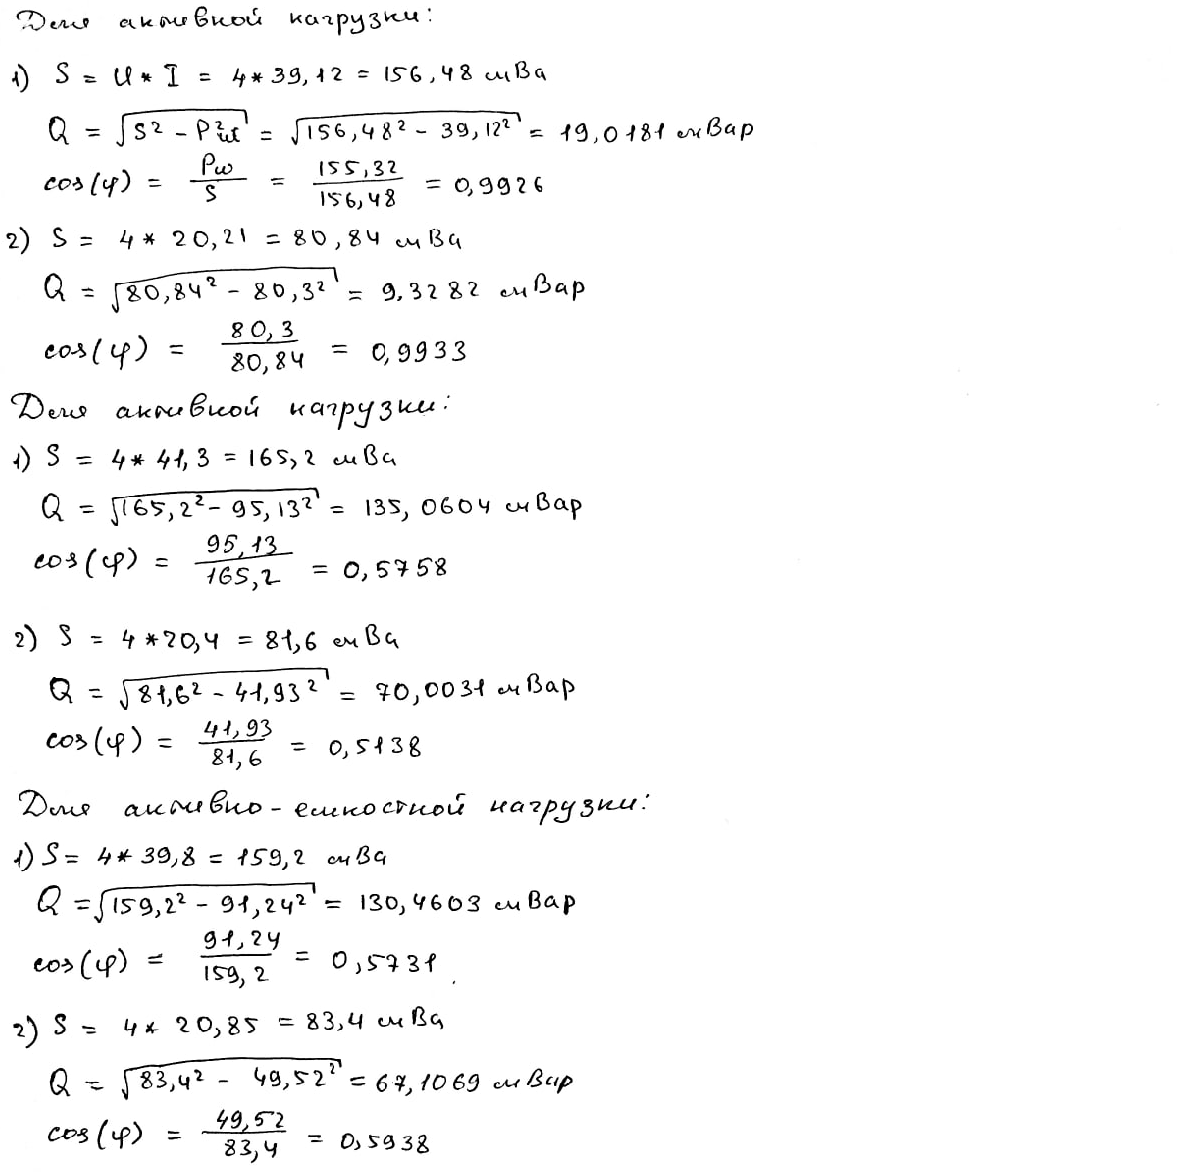 Для активной нагрузки:
1) S = U * I = 4 * 39,12 = 156,48 мВа
Q = √(S² - P²ш) = √(156,48² - 39,12²) = 19,0181 мВар
cos(φ) = Pш/S = 155,32/156,48 = 0,9926
2) S = 4 * 20,21 = 80,84 мВа
Q = √(80,84² - 80,3²) = 9,3282 мВар
cos(φ) = 80,3/80,84 = 0,9933
Для активной нагрузки:
1) S = 4 * 41,3 = 165,2 мВа
Q = √(165,2² - 95,13²) = 135,0604 мВар
cos(φ) = 95,13/165,2 = 0,5758
2) S = 4 * 20,4 = 81,6 мВа
Q = √(81,6² - 41,93²) = 70,0031 мВар
cos(φ) = 41,93/81,6 = 0,5138
Для активно-емкостной нагрузки:
1) S = 4 * 39,8 = 159,2 мВа
Q = √(159,2² - 91,24²) = 130,4603 мВар
cos(φ) = 91,24/159,2 = 0,5731
2) S = 4 * 20,85 = 83,4 мВа
Q = √(83,4² - 49,52²) = 67,1069 мВар
cos(φ) = 49,52/83,4 = 0,5938